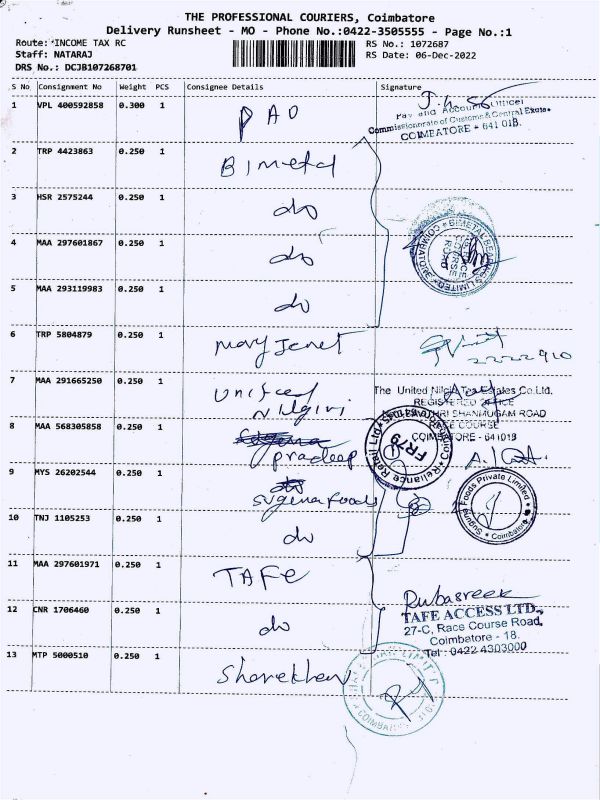 THE PROFESSIONAL COURIERS, Coimbatore
Delivery Runsheet - MO - Phone No.:0422-3505555 - Page No.:1
Route: *INCOME TAX RC RS No.: 1072687
Staff: NATARAJ RS Date: 06-Dec-2022
DRS No.: DCJB107268701
S No Consignment No Weight PCS Consignee Details Signature
1 VPL 400592858 0.300 1 PAO
Pay and Accounts Officer
Commissionerate of Customs & Central Excise
COIMBATORE - 641 018.
2 TRP 4423863 0.250 1 Bimetal
3 HSR 2575244 0.250 1 do
4 MAA 297601867 0.250 1 do
BIMETAL BEARINGS LIMITED * COIMBATORE
RACE COURSE ROAD
5 MAA 293119983 0.250 1 do
6 TRP 5804879 0.250 1 Mary Jenet
7 MAA 291665250 0.250 1 United Nilgiri
The United Nilgiri Tea Estates Co.Ltd.
REGISTERED OFFICE
SHANMUGAM ROAD
RACE COURSE
COIMBATORE - 641018
8 MAA 568305858 0.250 1 pradeep
Reliance Retail Ltd
FR79
9 MYS 26202544 0.250 1 do suguna Foods
Suguna Foods Private Limited * Coimbatore
10 TNJ 1105253 0.250 1 do
11 MAA 297601971 0.250 1 TAFE
Rubasree
TAFE ACCESS LTD.,
27-C, Race Course Road,
Coimbatore - 18.
Tel : 0422 4303000
12 CNR 1706460 0.250 1 do
13 MTP 5000510 0.250 1 Sharekhan
COIMBATORE